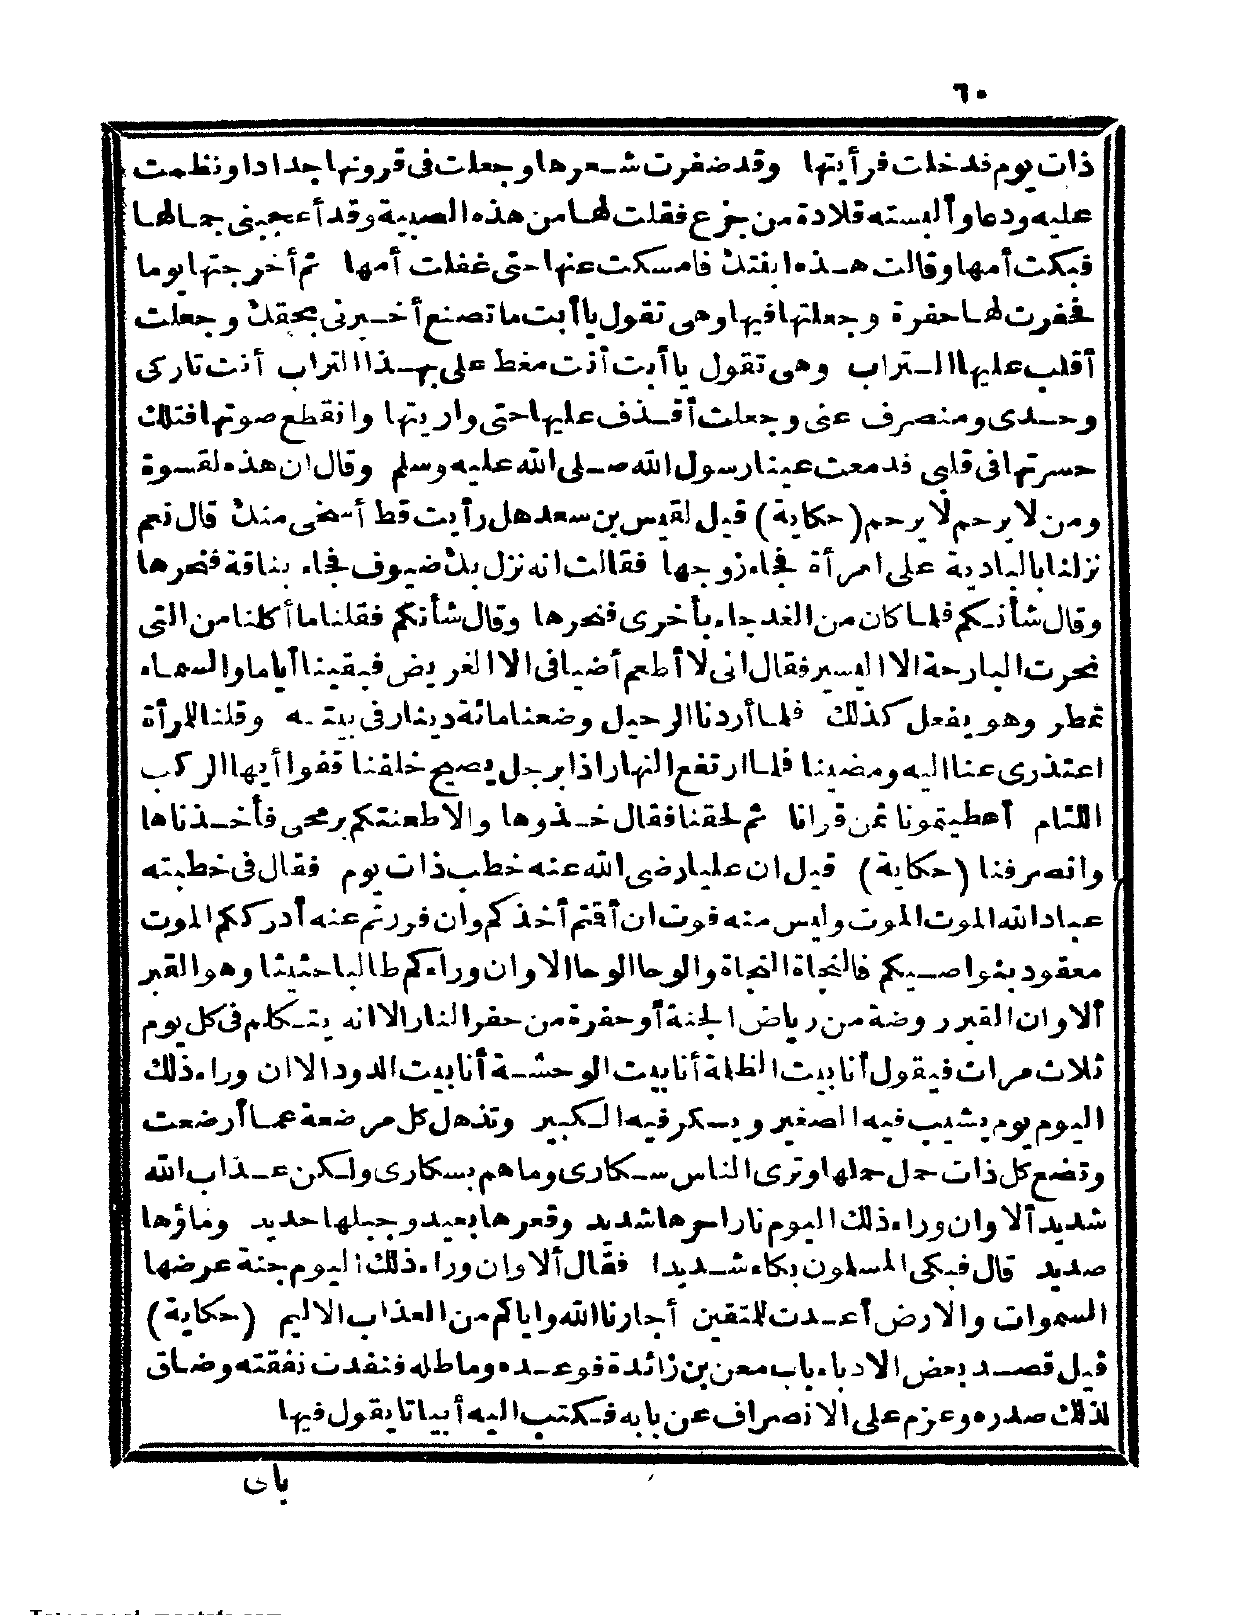 ٦٠
ذات يوم فدخلت فرأيتها وقد ضفرت شعرها وجعلت فى قرونها جدادا ونظمت
عليه ودعا وألبسته قلادة من جزع فقلت لها من هذه الصبية وقد أعجبنى جمالها
فبكت أمها وقالت هذه ابنتك فامسكت عنها حتى غفلت أمها ثم أخرجتها يوما
فحفرت لها حفرة وجعلتها فيها وهى تقول يا أبت ما تصنع أخبرنى بحقك وجعلت
أقلب عليها التراب وهى تقول يا أبت أنت مغط على بهذا التراب أنت تاركى
وحدى ومنصرف عنى وجعلت أقذف عليها حتى واريتها وانقطع صوتها فتلك
حسرتها فى قلبى فدمعت عينا رسول الله صلى الله عليه وسلم وقال ان هذه لقسوة
ومن لا يرحم لا يرحم (حكاية) قيل لقيس بن سعد هل رأيت قط أسخى منك قال نعم
نزلنا بالبادية على امرأة فجاء زوجها فقالت انه نزل بك ضيوف فجاء بناقة فنحرها
وقال شأنكم فلما كان من الغد جاء بأخرى فنحرها وقال شأنكم فقلنا ما أكلنا من التى
نحرت البارحة الا اليسير فقال انى لا أطعم أضيافى الا الغريض فبقينا أياما والسماء
تمطر وهو يفعل كذلك فلما أردنا الرحيل وضعنا مائة دينار فى بيته وقلنا للمرأة
اعتذرى عنا اليه ومضينا فلما ارتفع النهار اذا برجل يصيح خلفنا قفوا أيها الركب
اللئام أعطيتمونا ثمن قرانا ثم لحقنا فقال خذوها والا طعنتكم برمحى فأخذناها
وانصرفنا (حكاية) قيل ان عليا رضى الله عنه خطب ذات يوم فقال فى خطبته
عباد الله الموت الموت وليس منه فوت ان أقتم أخذكم وان فررتم عنه أدرككم الموت
معقود بنواصيكم فالنجاة النجاة والوحا الوحا الا وان وراءكم طالبا حثيثا وهو القبر
ألا وان القبر روضة من رياض الجنة أو حفرة من حفر النار الا انه يتكلم فى كل يوم
ثلاث مرات فيقول أنا بيت الظلمة أنا بيت الوحشة أنا بيت الدود الا ان وراء ذلك
اليوم يوم يشيب فيه الصغير ويسكر فيه الكبير وتذهل كل مرضعة عما أرضعت
وتضع كل ذات حمل حملها وترى الناس سكارى وما هم بسكارى ولكن عذاب الله
شديد ألا وان وراء ذلك اليوم نارا حرها شديد وقعرها بعيد وجبلها حديد وماؤها
صديد قال فبكى المسلمون بكاء شديدا فقال ألا وان وراء ذلك اليوم جنة عرضها
السموات والارض أعدت للمتقين أجارنا الله واياكم من العذاب الاليم (حكاية)
قيل قصد بعض الادباء باب معن بن زائدة فوعده وماطله فنفدت نفقته وضاق
لذلك صدره وعزم على الانصراف عن بابه فكتب اليه أبياتا يقول فيها
باى